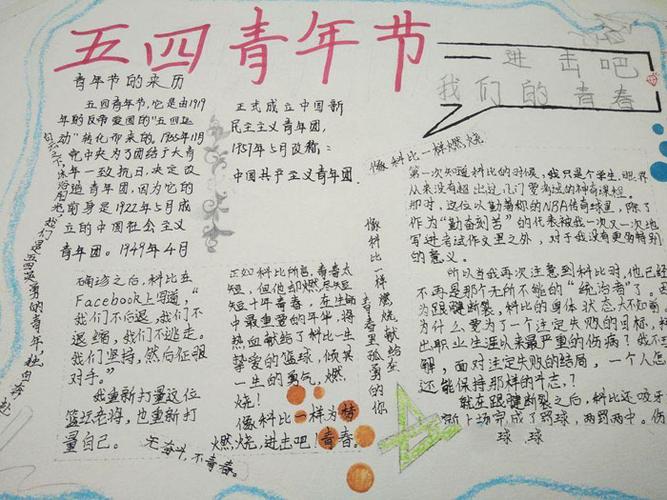 五四青年节
进击吧
我们的青春
青年节的来历
五四青年节，它是由1919
年的反帝爱国的“五四运
动”转化而来的，1935年11月
中央为了团结于大青
年一致抗日，决定改
造青年团，因为它的
前身是1922年5月成
立的中国社会主义
青年团。1949年4月
正式成立中国新
民主主义青年团，
1957年5月改称：
中国共产主义青年团
像科比一样燃烧
第一次知道科比的时候，我只是个学生，眼界
从来没有超出过几门要考试的神奇课程。
那时，这位以勤著称的NBA传奇球星，除了
作为“勤奋刻苦”的代表被我一次又一次地
写进考试作文里之外，对于我没有更多特别
的意义。
所以当我再次注意到科比时，他已经
不再是那个无所不能的“统治者”了。因
为跟腱断裂，科比的身体状态大不如前。
为什么要为了一个注定失败的目标，
出职业生涯以来最严重的伤病？我不
解，面对注定失败的结局，一个人怎
还能保持那样的斗志？
就在跟腱断裂之后，科比还咬牙
上场完成了罚球，两罚两中。伤
球 球
确诊之后，科比在
Facebook上写道，“
我们不后退，我们不
退缩，我们不逃走。
我们坚持，然后征服
对手。”
我重新打量这位
篮坛老将，也重新打
量自己。
正如科比所言，青春太
短，但他却燃尽短
短十年青春，在生命
中最重要的年华，将
热血献给了科比一生
挚爱的篮球，倾其
一生的勇气，燃
烧！
像科比一样为梦
燃烧，进击吧！青春。
无奋斗，不青春。
像科比一样燃烧献给在
青春里孤勇的你
我们是五四英勇的青年，